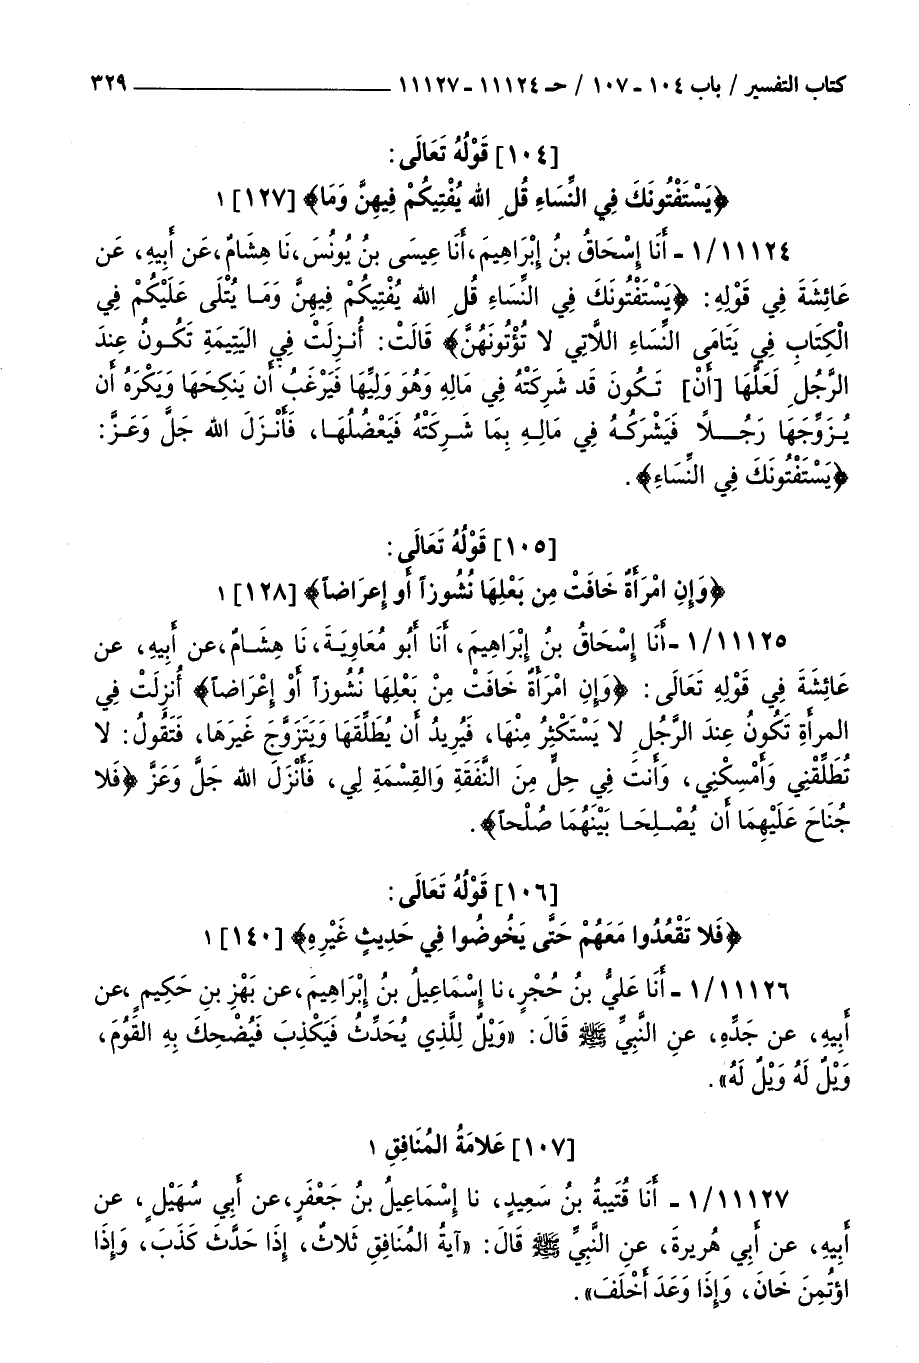 كتاب التفسير / باب ١٠٤ ـ ١٠٧ / حـ ١١١٢٤ ـ ١١١٢٧ ٣٢٩
[١٠٤] قَوْلُهُ تَعَالَى:
﴿يَسْتَفْتُونَكَ فِي النِّسَاءِ قُلِ اللهُ يُفْتِيكُمْ فِيهِنَّ وَمَا﴾ [١٢٧] ١
١١١٢٤/١ ـ أَنَا إِسْحَاقُ بنُ إِبْرَاهِيمَ، أَنَا عِيسَى بنُ يُونُسَ، نَا هِشَامٌ، عَن أَبِيهِ، عَن
عَائِشَةَ فِي قَوْلِهِ: ﴿يَسْتَفْتُونَكَ فِي النِّسَاءِ قُلِ اللهُ يُفْتِيكُمْ فِيهِنَّ وَمَا يُتْلَى عَلَيْكُمْ فِي
الْكِتَابِ فِي يَتَامَى النِّسَاءِ اللَّاتِي لا تُؤْتُونَهُنَّ﴾ قَالَتْ: أُنزِلَتْ فِي اليَتِيمَةِ تَكُونُ عِندَ
الرَّجُلِ لَعَلَّهَا [أَنْ] تَكُونَ قَد شَرِكَتْهُ فِي مَالِهِ وَهُوَ وَلِيُّهَا فَيَرْغَبُ أَن يَنكِحَهَا وَيَكْرَهُ أَن
يُزَوِّجَهَا رَجُلًا فَيَشْرَكُهُ فِي مَالِهِ بِمَا شَرِكَتْهُ فَيَعْضُلُهَا، فَأَنْزَلَ اللهُ جَلَّ وَعَزَّ:
﴿يَسْتَفْتُونَكَ فِي النِّسَاءِ﴾.
[١٠٥] قَوْلُهُ تَعَالَى:
﴿وَإِنِ امْرَأَةٌ خَافَتْ مِن بَعْلِهَا نُشُوزاً أَو إِعرَاضاً﴾ [١٢٨] ١
١١١٢٥/١ ـ أَنَا إِسْحَاقُ بنُ إِبْرَاهِيمَ، أَنَا أَبُو مُعَاوِيَةَ، نَا هِشَامٌ، عن أَبِيهِ، عن
عَائِشَةَ فِي قَوْلِهِ تَعَالَى: ﴿وَإِنِ امْرَأَةٌ خَافَتْ مِنْ بَعْلِهَا نُشُوزاً أَوْ إِعْرَاضاً﴾ أُنزِلَتْ فِي
المرأَةِ تَكُونُ عِندَ الرَّجُلِ لا يَسْتَكْثِرُ مِنْهَا، فَيُرِيدُ أَن يُطَلِّقَهَا وَيَتَزَوَّجَ غَيرَهَا، فَتَقُولُ: لا
تُطَلِّقْنِي وَأَمْسِكْنِي، وَأَنتَ فِي حِلٍّ مِنَ النَّفَقَةِ وَالقِسْمَةِ لِي، فَأَنْزَلَ اللهُ جَلَّ وَعَزَّ ﴿فَلا
جُنَاحَ عَلَيْهِمَا أَن يُصْلِحَا بَيْنَهُمَا صُلْحاً﴾.
[١٠٦] قَوْلُهُ تَعَالَى:
﴿فَلا تَقْعُدُوا مَعَهُمْ حَتَّى يَخُوضُوا فِي حَدِيثٍ غَيْرِهِ﴾ [١٤٠] ١
١١١٢٦/١ ـ أَنَا عَلِيُّ بنُ حُجْرٍ، نا إِسْمَاعِيلُ بنُ إِبْرَاهِيمَ، عن بَهْزِ بنِ حَكِيمٍ، عن
أَبِيهِ، عن جَدِّهِ، عَنِ النَّبِيِّ ﷺ قَالَ: «وَيْلٌ لِلَّذِي يُحَدِّثُ فَيَكْذِبَ فَيُضْحِكَ بِهِ القَوْمَ،
وَيْلٌ لَهُ وَيْلٌ لَهُ».
[١٠٧] عَلامَةُ المُنَافِقِ ١
١١١٢٧/١ ـ أَنَا قُتَيبةُ بنُ سَعِيدٍ، نا إِسْمَاعِيلُ بنُ جَعْفَرٍ، عن أَبِي سُهَيْلٍ، عن
أَبِيهِ، عن أَبِي هُرِيرةَ، عنِ النَّبِيِّ ﷺ قَالَ: «آيةُ المُنَافِقِ ثَلاثٌ، إِذَا حَدَّثَ كَذَبَ، وَإِذَا
اؤتُمِنَ خَانَ، وَإِذَا وَعَدَ أَخْلَفَ».